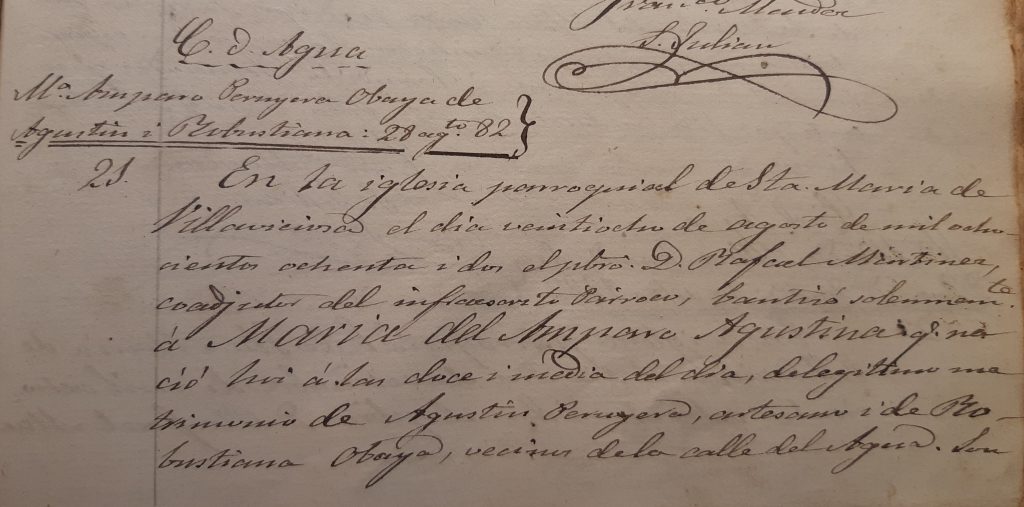 Franco Mender
S. Julian
C. d. Agua
Mª Amparo Peruyera Obaya de
Agustin i Robustiana: 28 agto. 82
21. En la iglesia parroquial de Sta. Maria de
Villaviciosa el dia veintiocho de agosto de mil ocho-
cientos ochenta i dos el pbro. D. Rafael Martinez,
coadjutor del infraescrito Párroco, bautizó solemnemte.
á Maria del Amparo Agustina q. na-
ció hoi á las doce i media del dia, de legitimo ma
trimonio de Agustin Peruyera, artesano i de Ro-
bustiana Obaya, vecinos de la calle del Agua. Son